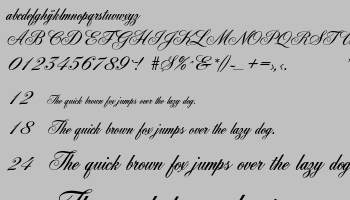 abcdefghijklmnopqrstuvwxyz
ABCDEFGHIJKLMNOPQRSTU
0123456789 ! #$% & *()-_ +=
12 The quick brown fox jumps over the lazy dog.
18 The quick brown fox jumps over the lazy dog.
24 The quick brown fox jumps over the lazy dog